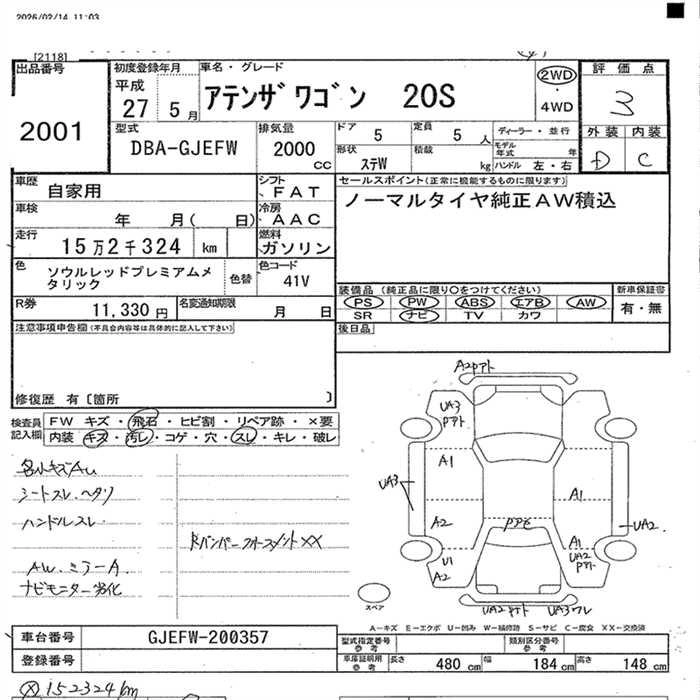 2026/02/14 11:03
[2118]
出品番号
2001
初度登録年月
平成
27 5月
車名・グレード
アテンザワゴン 20S
2WD
・
4WD
評価点
3
外装 内装
D C
型式
DBA-GJEFW
排気量
2000
CC
ドア 5
定員 5人
形状 ステW
積載 kg
ディーラー・並行
モデル年式 年
ハンドル 左・右
車歴
自家用
シフト
FAT
車検 年 月( 日)
冷房
AAC
走行 15万2千324 km
燃料
ガソリン
色 ソウルレッドプレミアムメタリック
色替
色コード
41V
R券 11,330円
名変通知期限 月 日
セールスポイント(正常に機能するものに限ります)
ノーマルタイヤ純正AW積込
装備品(純正品に限り○をつけてください)
PS PW ABS エアB AW
SR ナビ TV カワ
新車保証書
有・無
後日品
注意事項申告欄(不具合内容等は具体的に記入して下さい)
修復歴 有〔箇所 〕
検査員記入欄
FW キズ・飛石・ヒビ割・リペア跡・×要
内装 キズ・汚レ・コゲ・穴・スレ・キレ・破レ
各小キズAU
シートスレ、ヘタリ
ハンドルスレ
AW、ミラーA、
ナビモニター劣化
A2Pアト
UA3
Pアト
A1
UA3
A2
U1
A2
A1
UA2
A1
UA2
Pアト
UA2Pアト UA3ワレ
スペア
A－キズ E－エクボ U－凹み W－補修跡 S－サビ C－腐食 XX－交換済
車台番号 GJEFW-200357
登録番号
型式指定番号
参考
類別区分番号
参考
車庫証明用
参考
長さ 480cm
幅 184cm
高さ 148cm
152324km